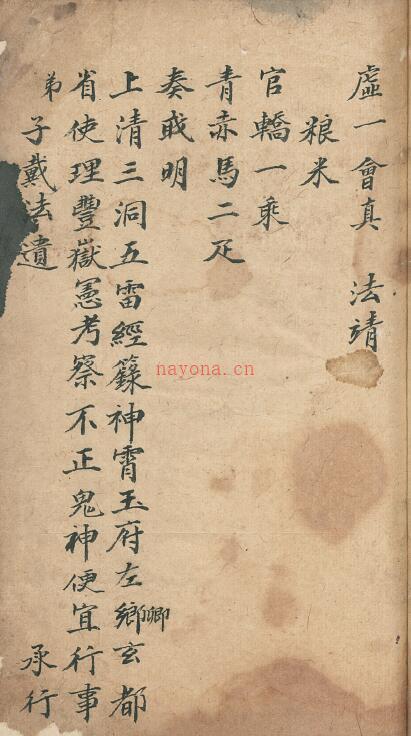 虛一會真　法靖
粮米
官轎一乘
青赤馬二疋
奏戝明
上清三洞五雷經籙神霄玉府左鄉卿玄都
省使理豐嶽憲考察不正鬼神便宜行事
弟子戴法遺　承行
nayona.cn